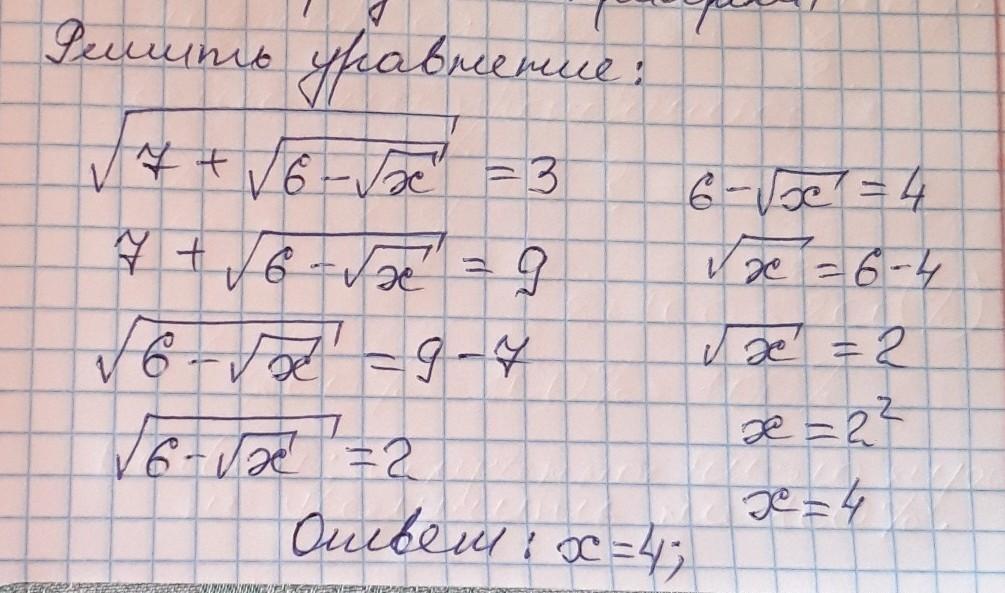 Решить уравнение:
√(7 + √(6 - √x)) = 3
7 + √(6 - √x) = 9
√(6 - √x) = 9 - 7
√(6 - √x) = 2
6 - √x = 4
√x = 6 - 4
√x = 2
x = 2²
x = 4
Ответ: x = 4;